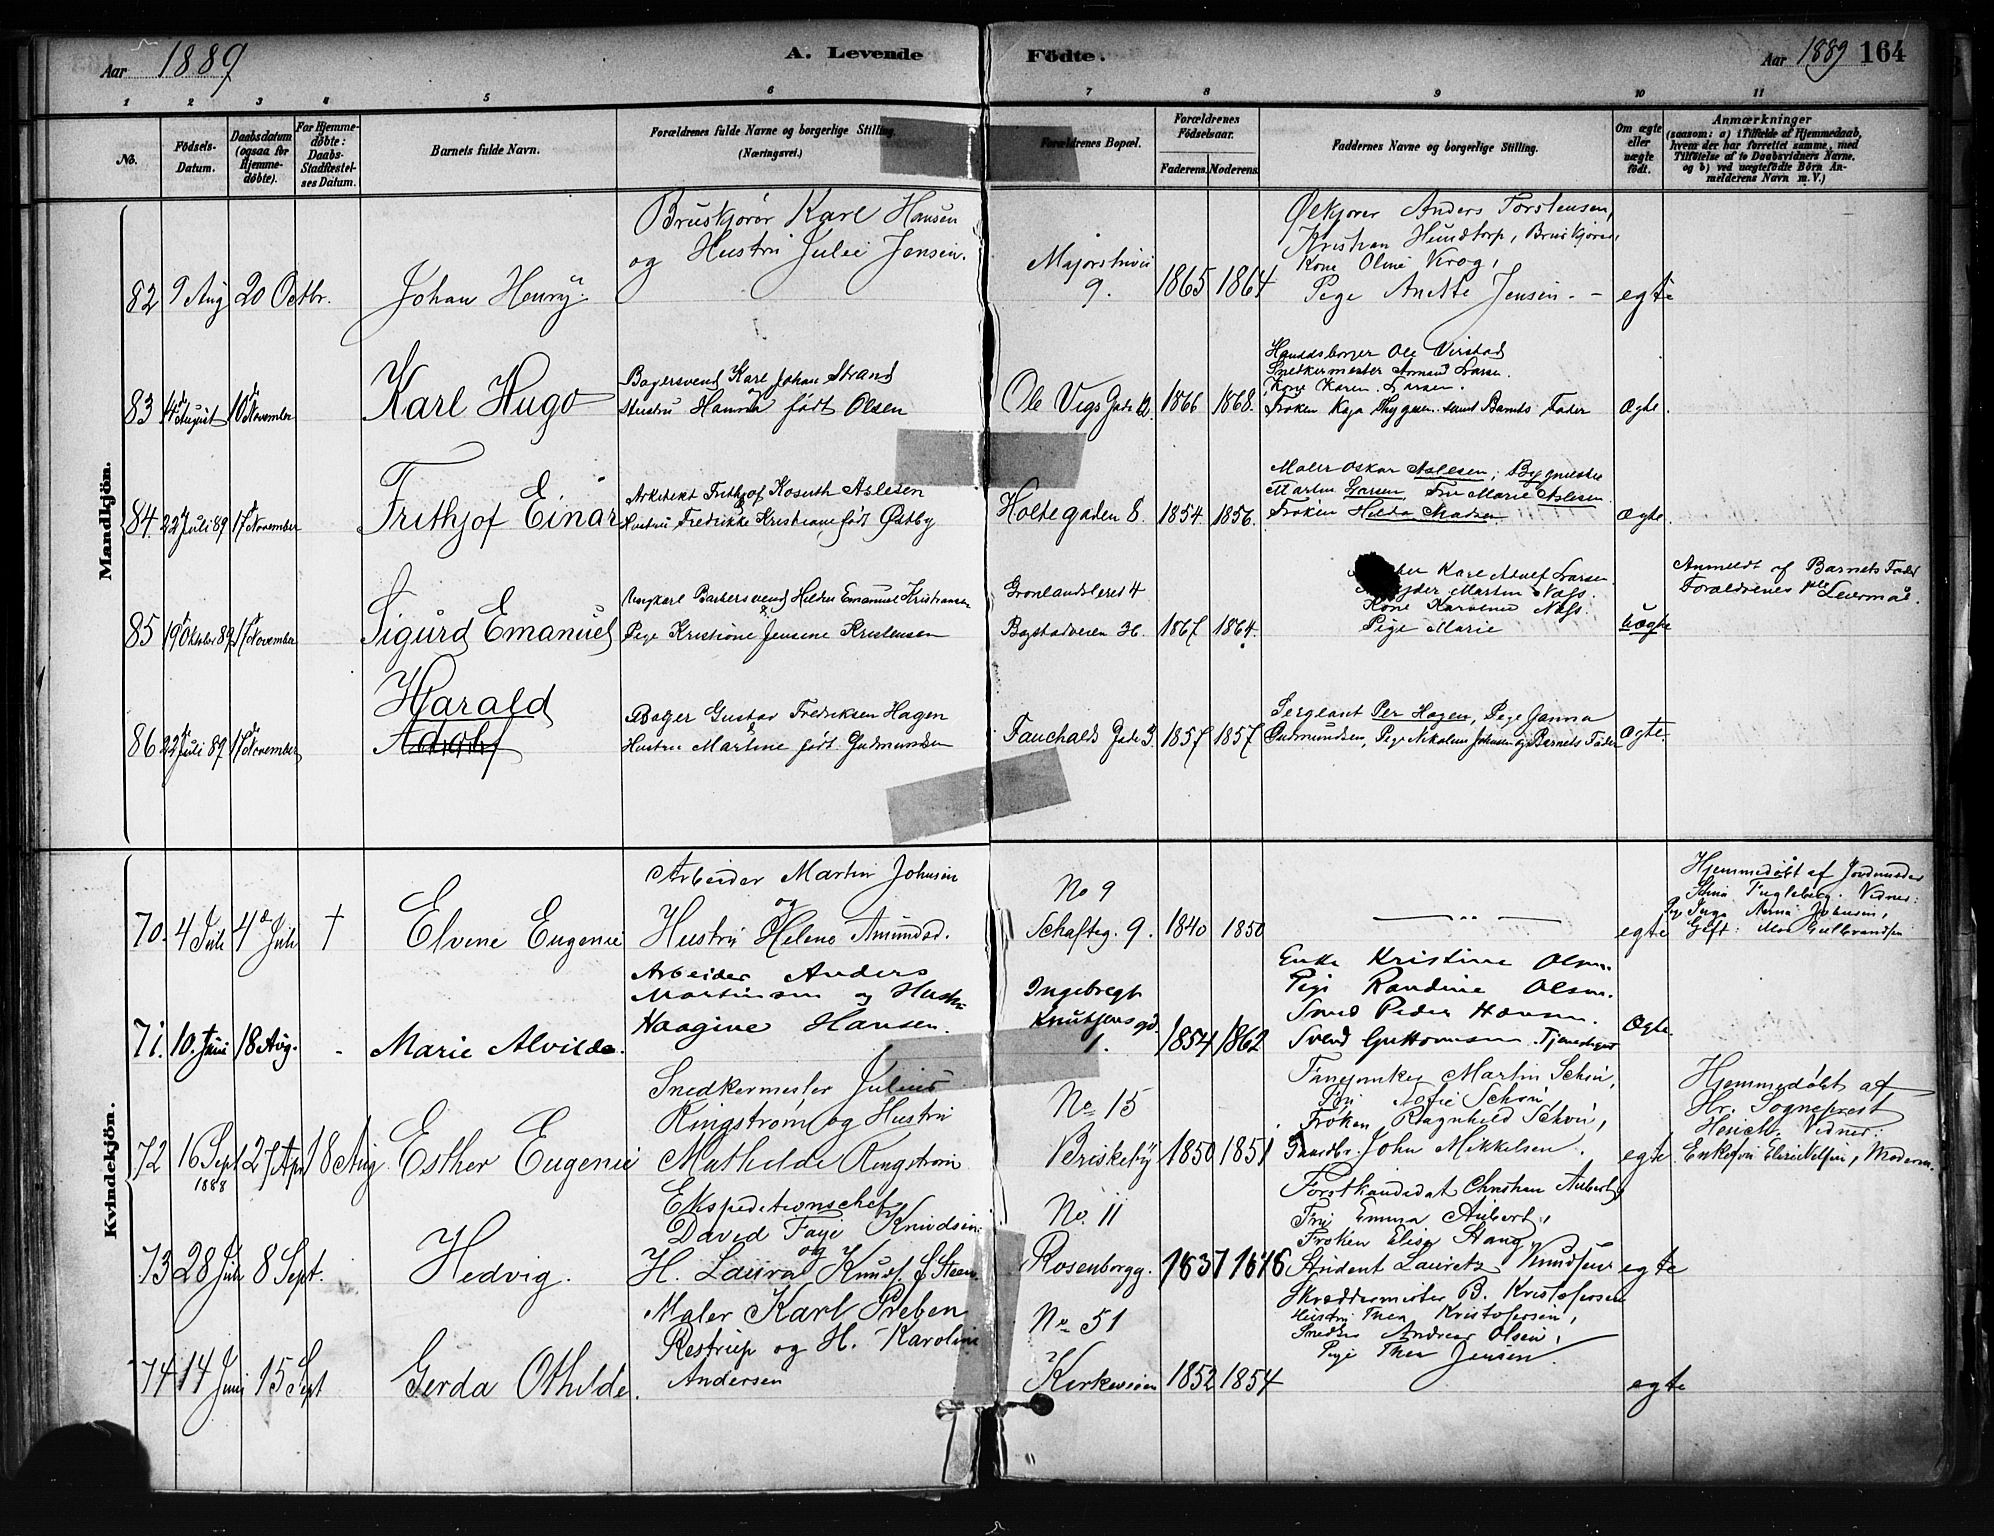 Aar 1889
A. Levende
Födte.
Aar 1889 164
1 2 3 4 5 6 7 8 9 10 11
No.
Födsels-Datum.
Daabsdatum (ogsaa for Hjemme-døbte).
For Hjemme-døbte: Daabs-Stadfæstel-ses Datum.
Barnets fulde Navn.
Forældrenes fulde Navne og borgerlige Stilling.
(Næringsvei.)
Forældrenes Bopæl.
Forældrenes Födselsaar.
Faderens. Moderens.
Faddernes Navne og borgerlige Stilling.
Om ægte eller uægte født.
Anmærkninger
(saasom: a) i Tilfælde af Hjemmedaab, hvem der har forrettet samme, med Tilføielse af to Daabsvidners Navne, og b) ved uægtefødte Børn An-melderens Navn m. V.)
Mandkjön.
Bruskjører Karl Hansen
og Hustru Julie Jensen.
82 9 Aug 20 Octbr.
Johan Henry.
Majorstuvei
9.
1865 1864
Ølkjører Anders Torstensen,
Kristian Hundtorp, Bruskjører,
Kone Oline Krog,
Pige Anette Jensen. -
egte
83 4de August 10de November
Karl Hugo
Bagersvend Karl Johan Strand
og
Hustru Hanna født Olsen
Ole Vigs Gade 12.
1866 1868.
Handelsborger Ole Virstad
Snedkermester Amand Larsen
Kone Karen Larsen.
Frøken Kaja Thygesen samt Barnets Fader
Ægte.
84. 22 Juli 89 17 November
Frithjof Einar
Arkitekt Frithjof Kosuth Aslesen
Hustru Fredrikke Kristiane født Østby
Holtegaden 8.
1854. 1856.
Maler Oskar Aslesen, Bygmester
Martin Larsen Fru Marie Aslesen
Frøken Hilda Madsen
Ægte.
85 19 Oktober 89 17 November
Sigurd Emanuel
Ungkarl Barbersvend Hilder Emanuel Kristiansen
Pige Kristiane Jensine Kristensen
Grønlandsleret 4
Bogstadveien 36.
1867 1864.
Karl Adolf Larsen
Martin Næss.
Kone Karoline Næss.
Pige Marie
Uægte
Anmeldt af Barnets Fader
Forældrenes Leiermaal.
86 22 Juli 89 17 November
Harald
Adolf
Bager Gustav Fredriksen Hagen
Hustru Martine født Gudmundsen
Fauchalds Gade 3.
1857 1857
Sergeant Per Hagen, Pige Janna
Gudmundsen, Pige Nikoline Johnsen og Barnets Fader
Ægte.
Kvindekjön.
70. 4 Juli 4de Juli †
Elvine Eugenie
Arbeider Martin Johnsen
og
Hustru Helene Amundsd.
No 9
Schafteg. 9.
1840 1850
— " —
egte
Hjemmedøbt af Jordmoder
Stina Fugleberg. Vidner:
Pige Inga Anna Johnsen,
Gift: Mor Gulbrandsen
71. 10. Juni 18 Aug. -
Marie Alvilde.
Arbeider Anders
Martinsen og Hustru
Haagine Hansen.
Ingebregt
Knutsens gd.
1.
1854 1862
Enke Kristine Olsen.
Pige Randine Olsen.
Smed Peder Hansen.
Svend Guttormsen. Tjenestegut
Ægte
72 16 Sept 1888 27 Apr 18 Aug
Esther Eugenie
Snedkermester Julius
Ringstrøm og Hustru
Mathilde Ringstrøm
No 15
Briskeby
1850 1851
Fanejunker Martin Schøn,
Fru Sofie Schøn,
Frøken Ragnhild Schøn,
Gaardbr. John Mikkelsen.
egte.
Hjemmedøbt af
Hr. Sogneprest
Hesich, Vidner:
Enkefru Elise Nilsen, Moderen.
73 28 Juli 8 Sept.
Hedvig.
Ekspeditionschef
David Faye Knudsen
og
H. Laura Knuds. f. Steen.
No. 11
Rosenborgg.
1837 1846
Forstkandidat Christian Aubert,
Fru Emma Aubert,
Frøken Elisa Stang
Student Lauretz Knudsen
egte
74 14 Juni 15 Sept
Gerda Othilde.
Maler Karl Preben
Restrup og H. Karoline
Andersen
No 51
Kirkeveien
1852 1854
Skræddermester B. Kristofersen
Hustru Thea Kristofersen,
Snedker Andreas Olsen,
Pige Thea Jensen.
egte